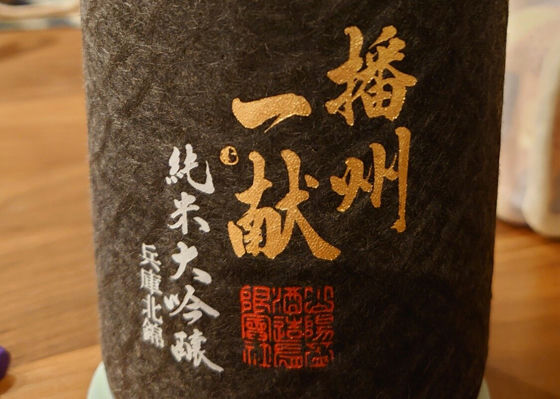 播州
一献
純米大吟醸
兵庫北錦
山陽盃
酒造有
限会社